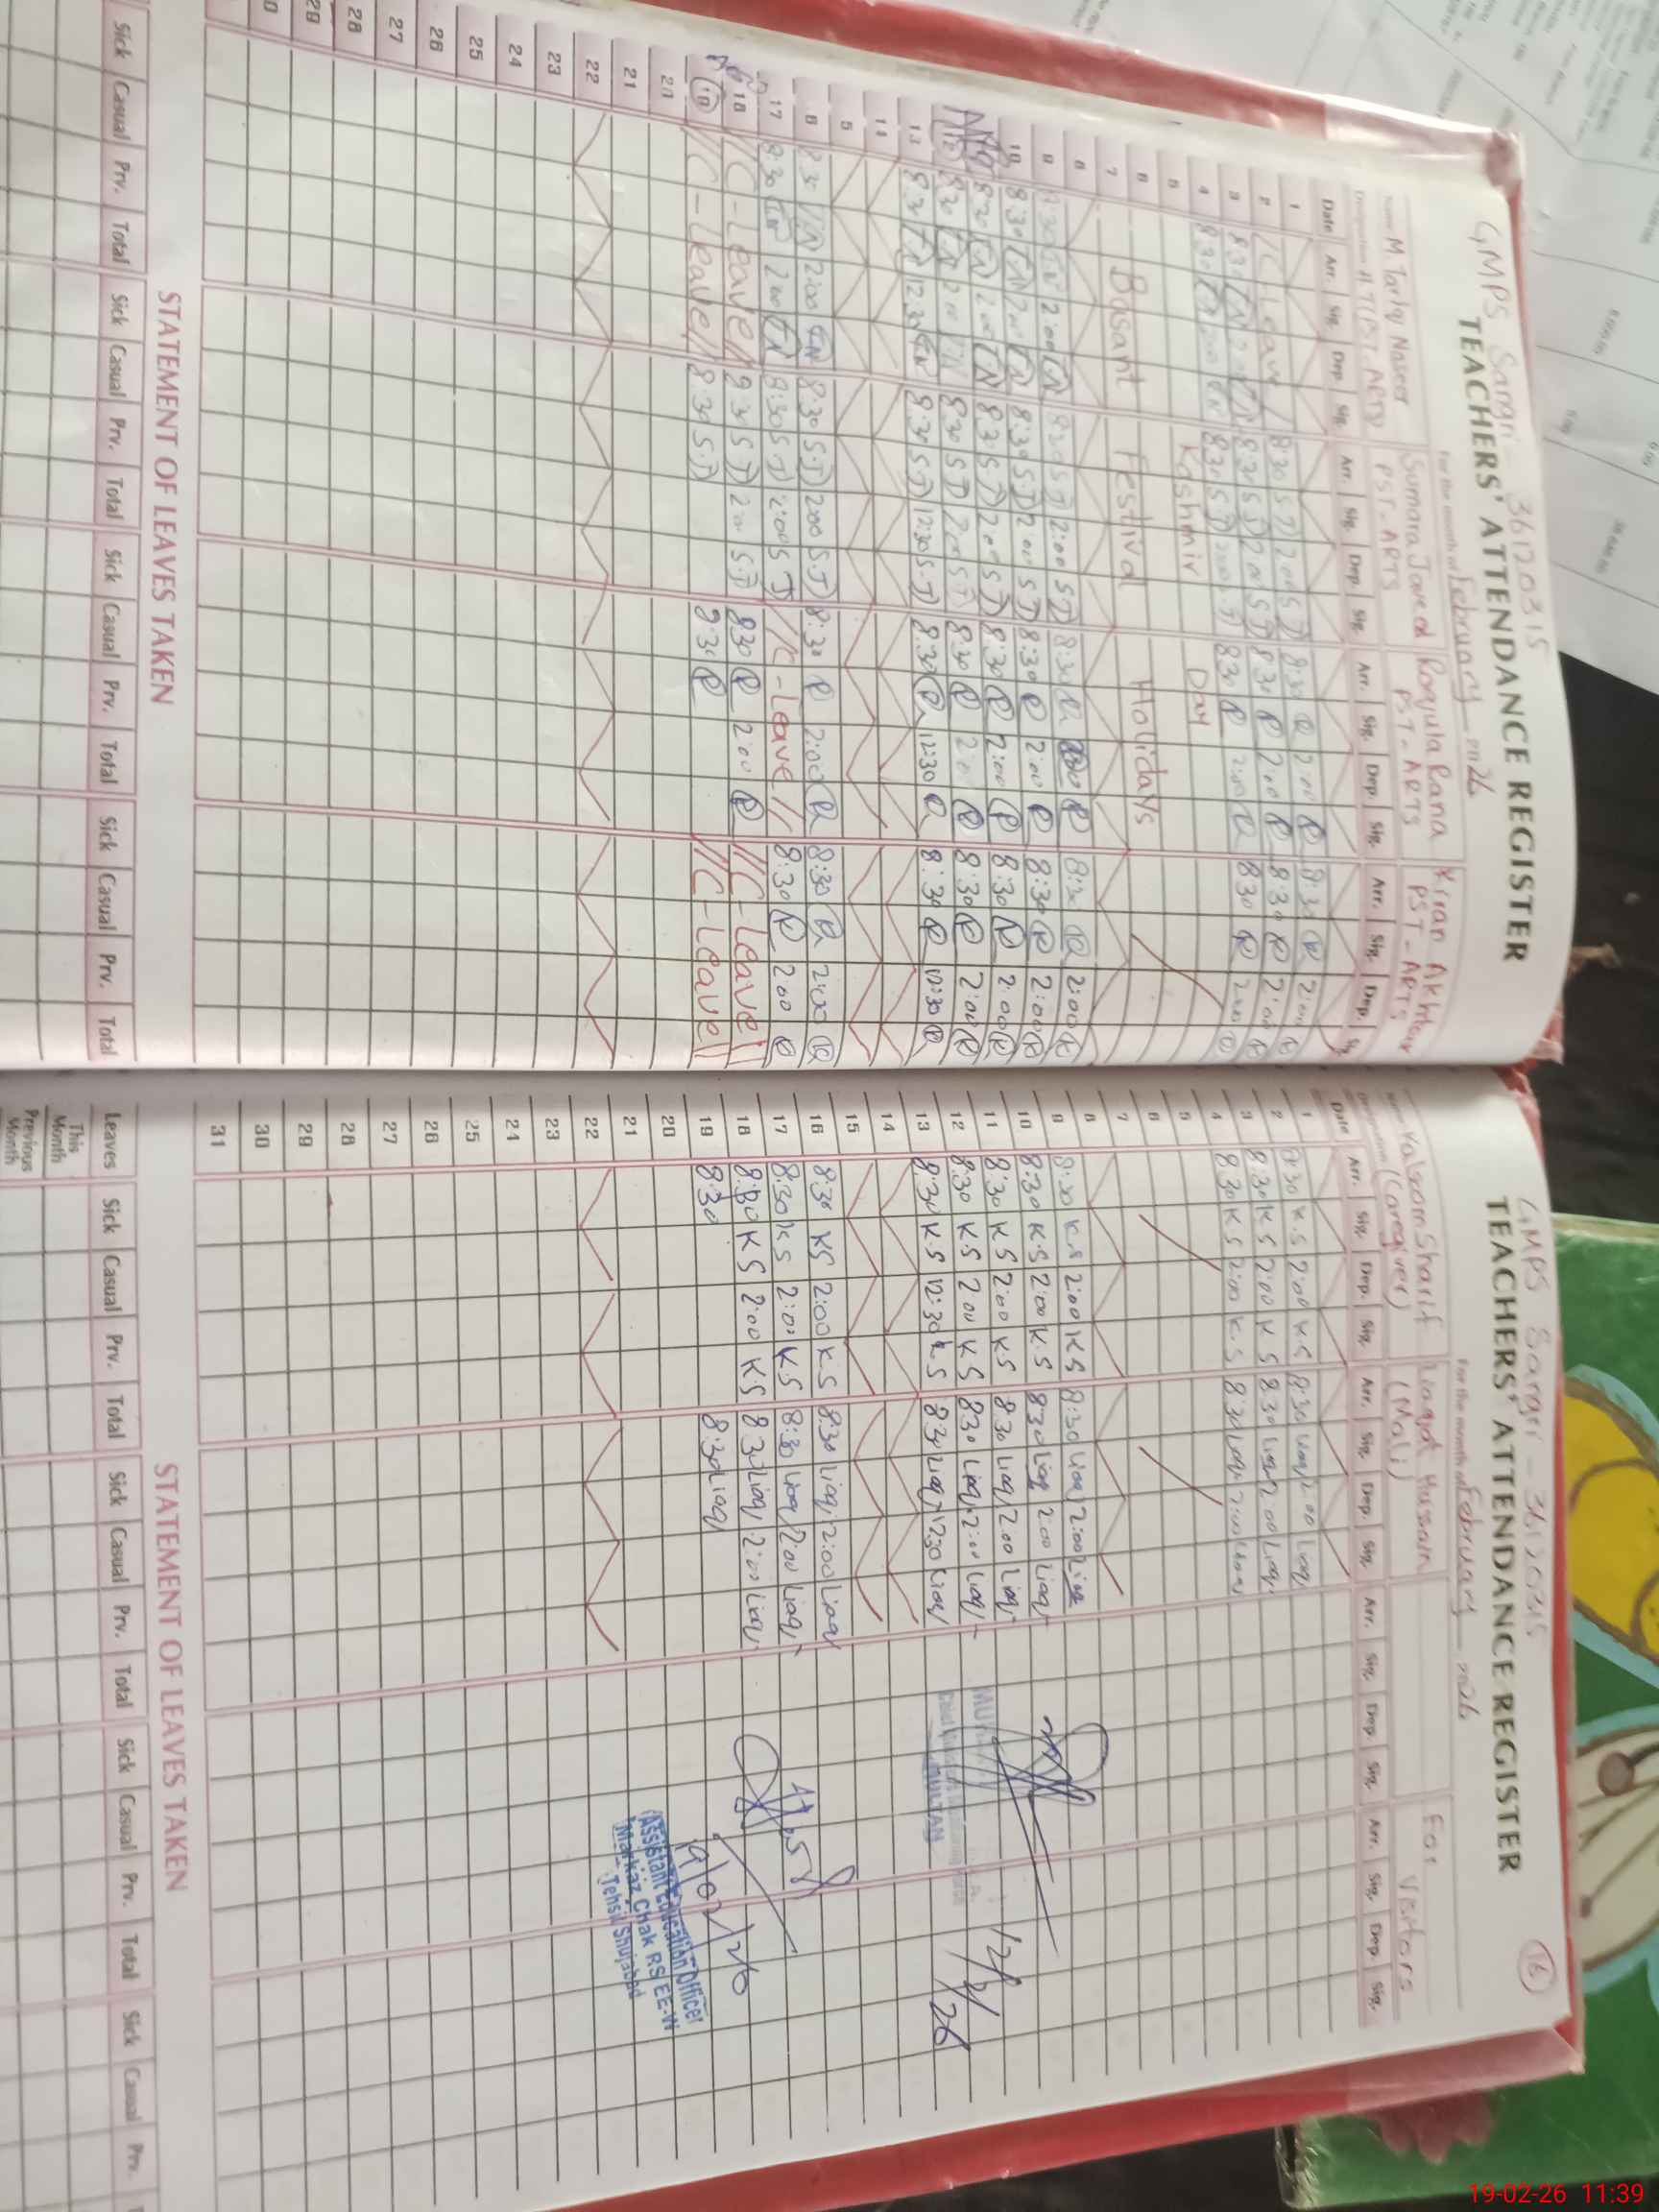 GMPS Sargi - 36120315
TEACHERS' ATTENDANCE REGISTER
For the month of February 2026
Name M Tariq Naseer Sumara Javed Roqula Rana Kiran Akhtar
Designation HT(PST-ARTS) PST-ARTS PST-ARTS PST-ARTS
Date Arr. Sig. Dep. Sig. Arr. Sig. Dep. Sig. Arr. Sig. Dep. Sig. Arr. Sig. Dep. Sig.
1
2 C-Leave 8:30 S.J 2:00 S.J 8:30 2:00 8:30 2:00
3 8:30 8:30 S.J 2:00 S.J 8:30 2:00 8:30 2:00
4 8:30 2:00 8:30 S.J 2:00 S.J 8:30 2:00 8:30 2:00
5 Kashmir Day
6
7 Basant Festival Holidays
8
9 8:30 2:00 8:30 S.J 2:00 S.J 8:30 8:30 2:00
10 8:30 2:00 8:30 S.J 2:00 S.J 8:30 2:00 8:30 2:00
11 8:30 2:00 8:30 S.J 2:00 S.J 8:30 2:00 8:30 2:00
12 8:30 2:00 8:30 S.J 2:00 S.J 8:30 2:00 8:30 2:00
13 8:30 12:30 8:30 S.J 12:30 S.J 8:30 12:30 8:30 12:30
14
5
6 8:30 2:00 8:30 S.J 2:00 S.J 8:30 2:00 8:30 2:00
17 8:30 2:00 8:30 S.J 2:00 S.J C-Leave 8:30 2:00
18 C-Leave 8:30 S.J 2:00 S.J 8:30 2:00 C-Leave
19 C-Leave 8:30 S.J 8:30 C-Leave
20
21
22
23
24
25
26
27
28
29
0
STATEMENT OF LEAVES TAKEN
Sick Casual Prv. Total Sick Casual Prv. Total Sick Casual Prv. Total Sick Casual Prv. Total
GMPS Sargi - 36120315
TEACHERS' ATTENDANCE REGISTER
16
For the month of February 2026
Name Kalsom Sharif Liaqat Hussain For Visitors
Designation (Caregiver) (Mali)
Date Arr. Sig. Dep. Sig. Arr. Sig. Dep. Sig. Arr. Sig. Dep. Sig. Arr. Sig. Dep. Sig.
1
2 8:30 K.S 2:00 K.S 8:30 Liaq 2:00 Liaq
3 8:30 K.S 2:00 K.S 8:30 Liaq 2:00 Liaq
4 8:30 K.S 2:00 K.S 8:30 Liaq 2:00 Liaq
5
6
7
8
9 8:30 K.S 2:00 K.S 8:30 Liaq 2:00 Liaq
10 8:30 K.S 2:00 K.S 8:30 Liaq 2:00 Liaq
11 8:30 K.S 2:00 K.S 8:30 Liaq 2:00 Liaq
12 8:30 K.S 2:00 K.S 8:30 Liaq 2:00 Liaq
13 8:30 K.S 12:30 K.S 8:30 Liaq 12:30 Liaq
14
15
16 8:30 K.S 2:00 K.S 8:30 Liaq 2:00 Liaq
17 8:30 K.S 2:00 K.S 8:30 Liaq 2:00 Liaq
18 8:30 K.S 2:00 K.S 8:30 Liaq 2:00 Liaq
19 8:30 8:30 Liaq
20
21
22
23
24
25
26
27
28
29
30
31
MULTAN
12/2/26
19/02/26
Assistant Education Officer
Markaz Chak RS EE-W
Tehsil Shujabad
STATEMENT OF LEAVES TAKEN
Leaves Sick Casual Prv. Total Sick Casual Prv. Total Sick Casual Prv. Total Sick Casual Prv.
This Month
Previous Month
19-02-26 11:39